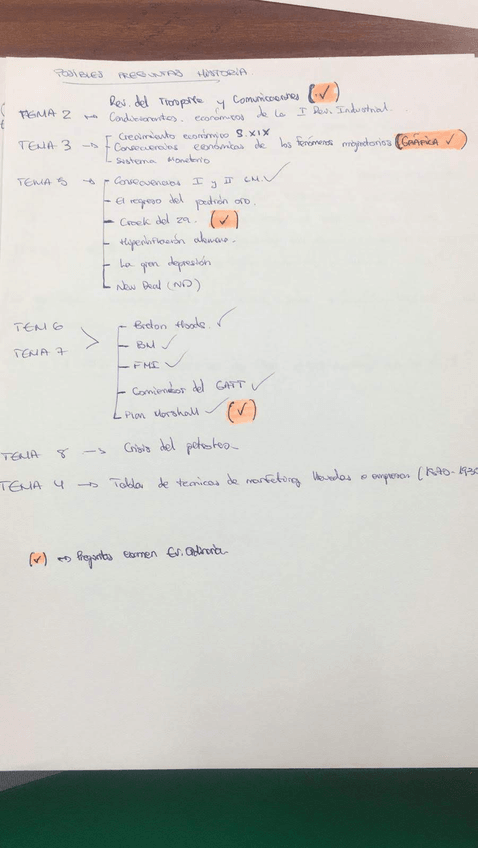 POSIBLES PREGUNTAS HISTORIA.
Rev. del Transporte y Comunicaciones (✓)
TEMA 2 → Condicionantes económicos de la I Rev. Industrial.
Crecimiento económico S.XIX
TEMA 3 → Consecuencias económicas de los fenómenos migratorios (GRÁFICA ✓)
Sistema Monetario
TEMA 5 → Consecuencias I y II G.M. ✓
El regreso del patrón oro.
Crack del 29. (✓)
Hiperinflación alemana.
La gran depresión
New Deal (ND)
TEM 6
TEMA 7
Breton Woods ✓
BM ✓
FMI ✓
Comienzos del GATT ✓
Plan Marshall ✓ (✓)
TEMA 8 → Crisis del petróleo
TEMA 4 → Tablas de técnicas de marketing llevadas a empresas (
(✓) ↔ Preguntas examen Ev. Ordinaria